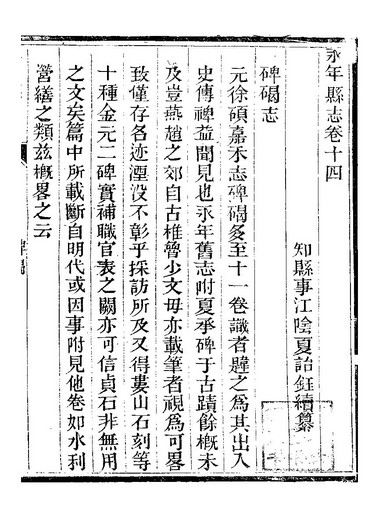 永年縣志卷十四
知縣事江陰夏詒鈺續纂
碑碣志
元徐碩嘉禾志碑碣多至十一卷識者韙之為其出入
史傳裨益聞見也永年舊志附夏承碑于古蹟餘概未
及豈燕趙之郊自古椎魯少文毋亦載筆者視為可畧
致僅存名迹湮沒不彰乎採訪所及又得婁山石刻等
十種金元二碑實補職官表之闕亦可信貞石非無用
之文矣篇中所載斷自明代或因事附見他卷如水利
營繕之類茲概畧之云